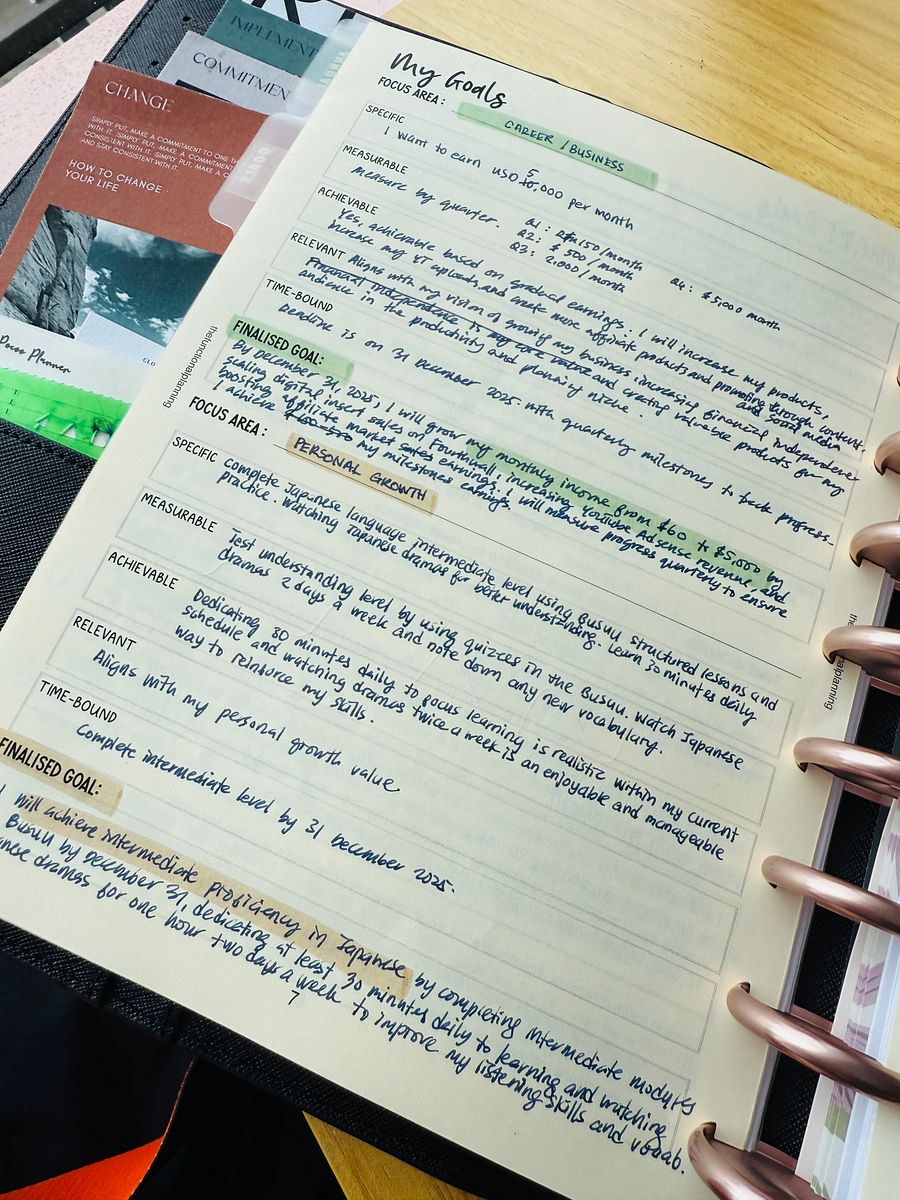 IMPLEMENT
COMMITMEN
CHANGE
SIMPLY PUT, MAKE A COMMITMENT TO ONE TH
WITH IT. SIMPLY PUT, MAKE A COMMITMENT
CONSISTENT WITH IT. SIMPLY PUT, MAKE A C
AND STAY CONSISTENT WITH IT.
HOW TO CHANGE
YOUR LIFE
Planner
thefunctionalplanning
My Goals
FOCUS AREA: CAREER / BUSINESS
SPECIFIC
I want to earn USD 5,000 per month
MEASURABLE
measure by quarter.
Q1: $150/month
Q2: $500/month
Q3: 2,000/month
Q4: $5,000 month
ACHIEVABLE
Yes, achievable based on gradual earnings. I will increase my products,
increase my YT uploads, and create more affiliate products and promoting through content
and social media
RELEVANT
Financial independence is my core value
Aligns with my vision of growing my business, increasing financial independence
and creating valuable products for my
audience in the productivity and planning niche.
TIME-BOUND
Deadline is on 31 December 2025 with quarterly milestones to track progress.
FINALISED GOAL:
By December 31, 2025, I will grow my monthly income from $600 to $5,000 by
scaling digital insert sales on Fourthwall, increasing YouTube Adsense revenue, and
boosting affiliate market sales earnings. I will measure progress quarterly to ensure
I achieve my milestones earnings.
FOCUS AREA: PERSONAL GROWTH
SPECIFIC
Complete Japanese language intermediate level using Busuu structured lessons and
practice. Watching Japanese dramas for better understanding. Learn 30 minutes daily
MEASURABLE
Test understanding level by using quizzes in the Busuu. Watch Japanese
dramas 2 days a week and note down any new vocabulary.
ACHIEVABLE
Dedicating 30 minutes daily to focus learning is realistic within my current
schedule and watching dramas twice a week is an enjoyable and manageable
way to reinforce my skills.
RELEVANT
Aligns with my personal growth value
TIME-BOUND
Complete intermediate level by 31 December 2025.
FINALISED GOAL:
I will achieve intermediate proficiency in Japanese by completing intermediate modules
Busuu by December 31, dedicating at least 30 minutes daily to learning and watching
anese dramas for one hour two days a week to improve my listening skills and vocab.
7
nalplanning